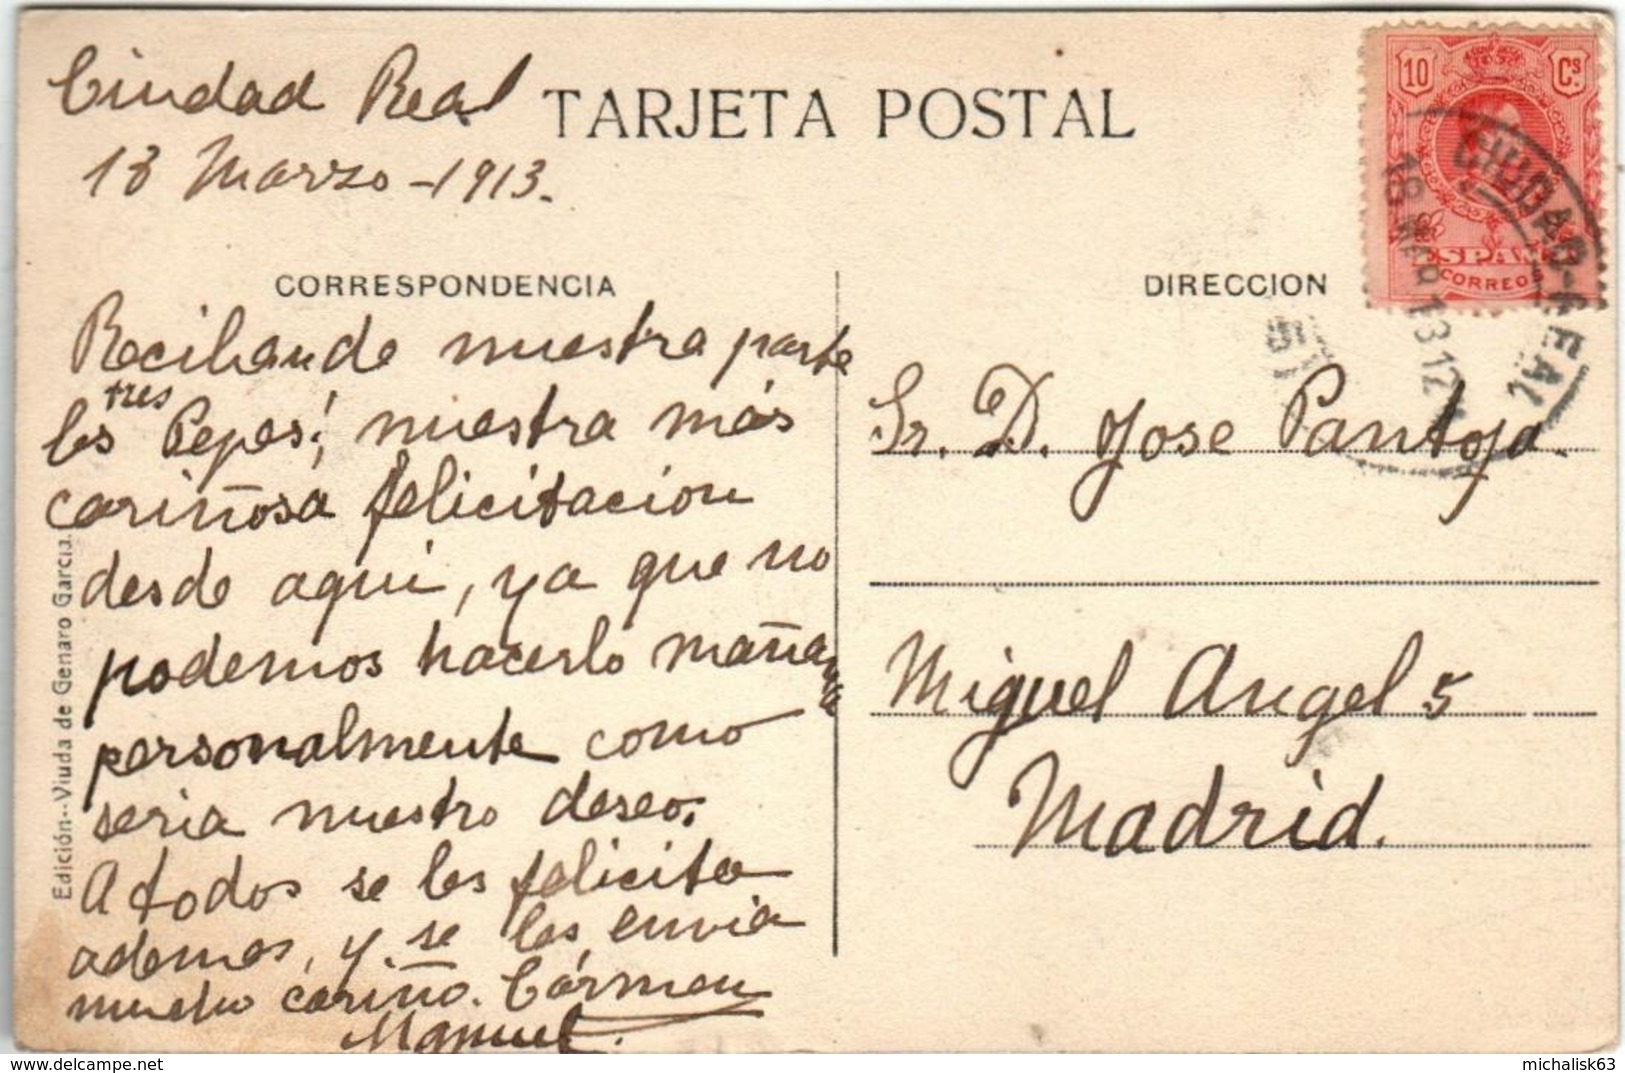 Ciudad Real
18 Marzo -1913.
TARJETA POSTAL
10 Cs.
ESPAÑA
CORREOS
CIUDAD-REAL
18 MAR 13 12
CORRESPONDENCIA
Reciban de nuestra parte
los tres Pepes! nuestra más
cariñosa felicitacion
desde aqui, ya que no
podemos hacerlo mañana
personalmente como
seria nuestro deseo.
A todos se les felicita
ademas, y se les envia
mucho cariño. Cármen
Manuel.
Edición--Viuda de Genaro García.
DIRECCION
Sr. D. Jose Pantoja.
Miguel Angel 5
Madrid.
delcampe.net
michalisk63